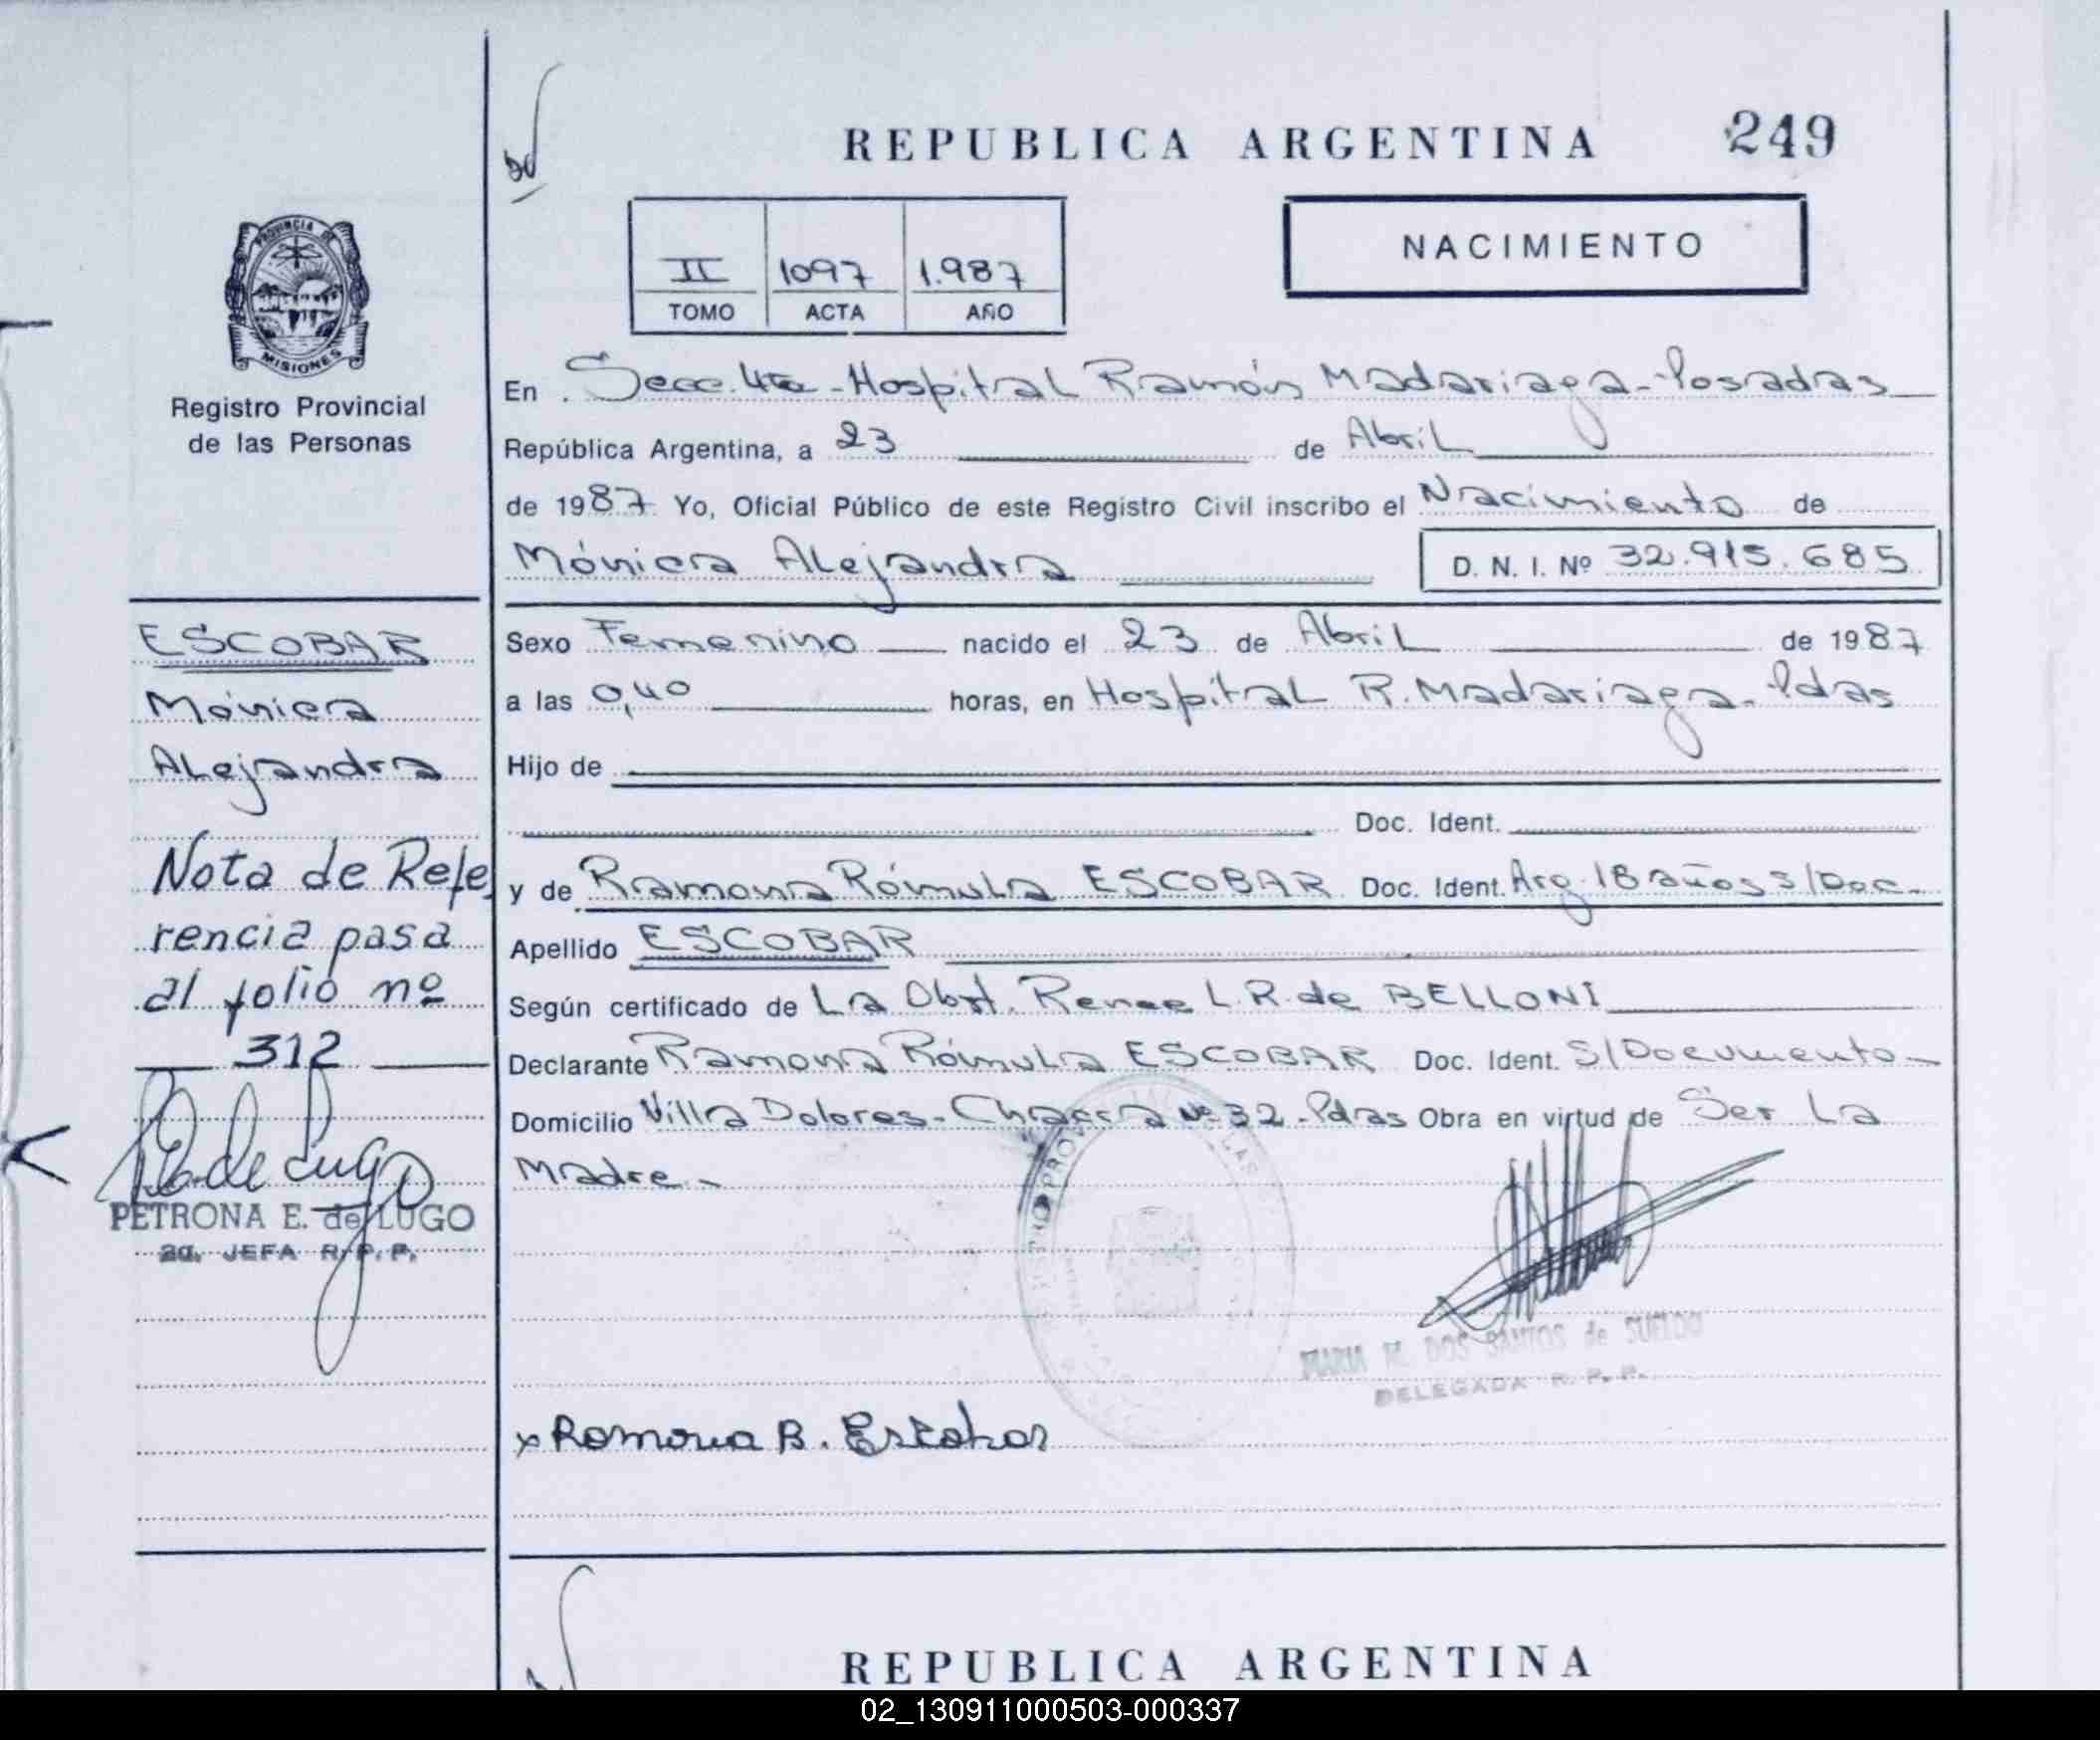 REPUBLICA ARGENTINA 249
PROVINCIA DE
MISIONES
Registro Provincial
de las Personas
II 1097 1.987
TOMO ACTA AÑO
NACIMIENTO
En Secc. 4ta - Hospital Ramón Madariaga - Posadas
República Argentina, a 23 de Abril
de 1987 Yo, Oficial Público de este Registro Civil inscribo el Nacimiento de
Mónica Alejandra D. N. I. Nº 32.915.685
Sexo Femenino nacido el 23 de Abril de 1987
a las 0,40 horas, en Hospital R. Madariaga - Pdas
Hijo de
Doc. Ident.
y de Ramona Rómula ESCOBAR Doc. Ident. Arg. 18 años s/Doc.
Apellido ESCOBAR
Según certificado de La Obst. Renee L.R. de BELLONI
Declarante Ramona Rómula ESCOBAR Doc. Ident. S/Documento
Domicilio Villa Dolores - Chacra Nº 32 - Pdas Obra en virtud de Ser La
Madre -
MARIA M. DOS SANTOS de SUELDO
DELEGADA R. P. P.
x Ramona B. Escobar
ESCOBAR
Mónica
Alejandra
Nota de Refe
rencia pasa
al folio nº
312
PETRONA E. de LUGO
2a. JEFA R. P. P.
REPUBLICA ARGENTINA
02_130911000503-000337